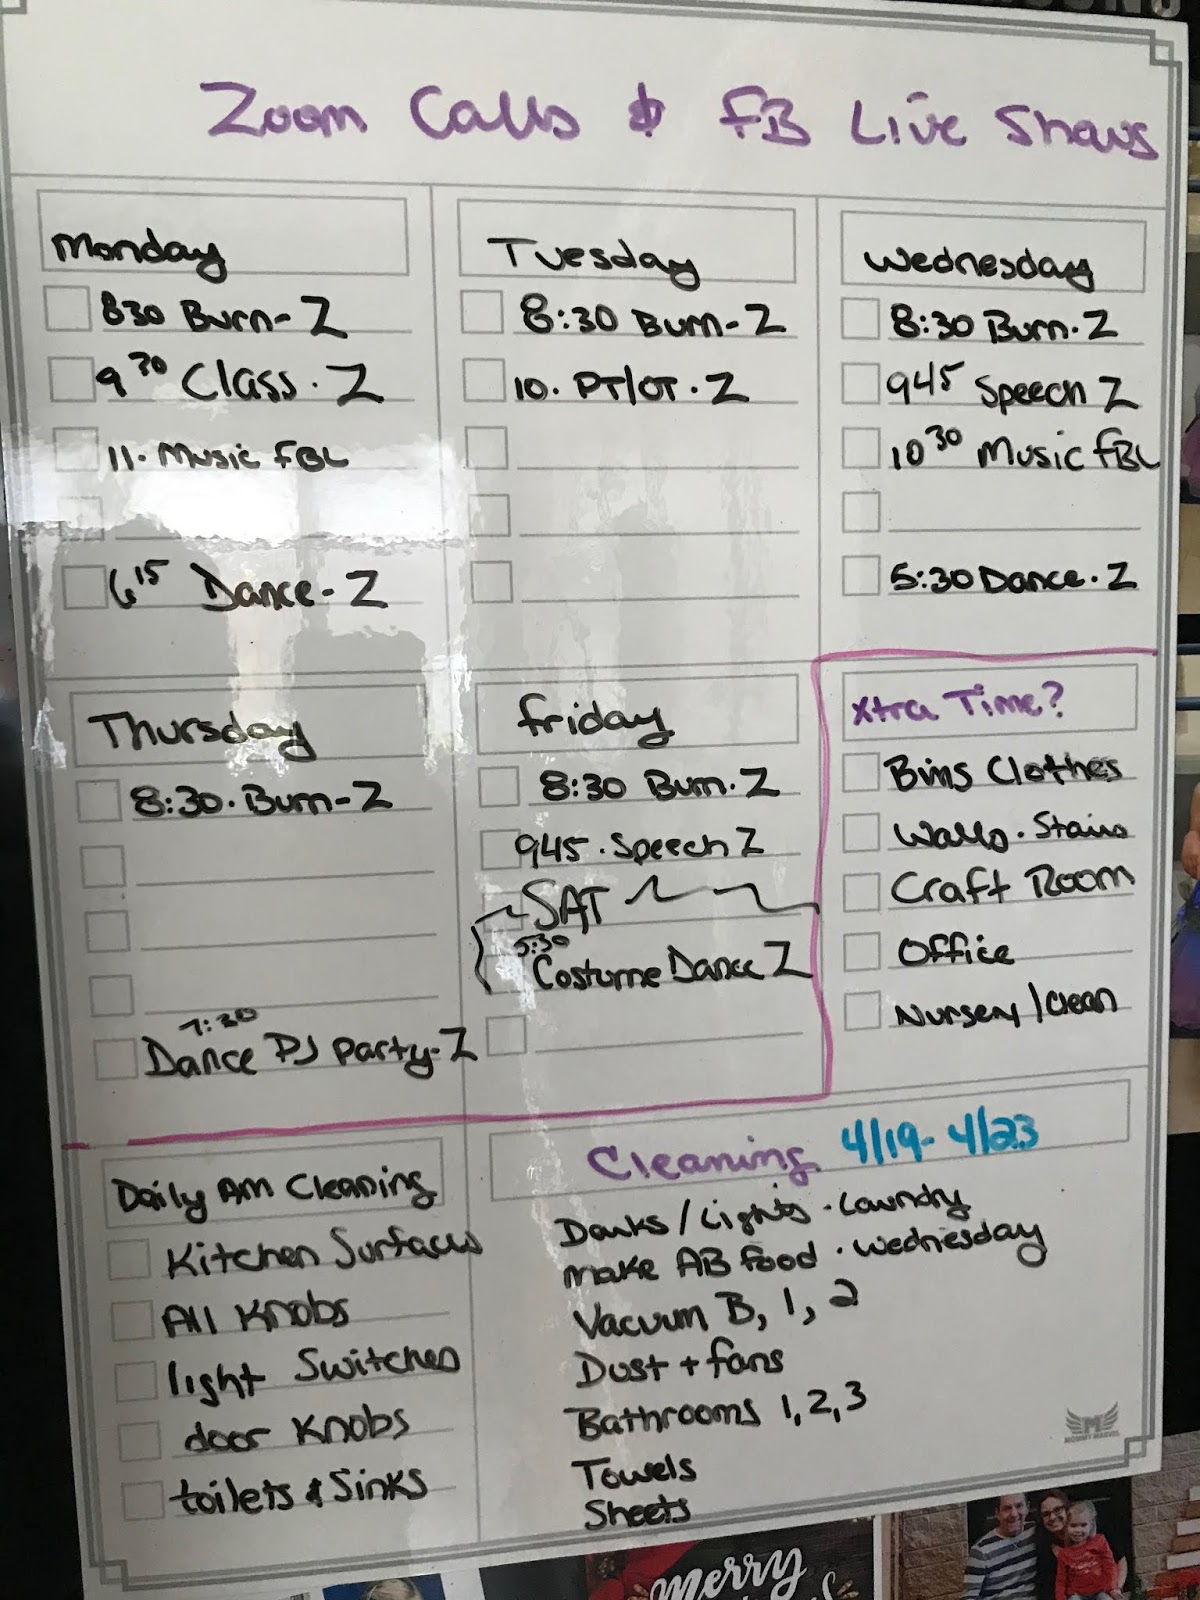 Zoom Calls & FB Live Shows
Monday
830 Burn-Z
9 30 Class. Z
11. Music FBL
6 15 Dance-Z
Tuesday
8:30 Burn-Z
10. PT/OT. Z
Wednesday
8:30 Burn. Z
945 Speech Z
10 30 Music FBL
5:30 Dance. Z
Thursday
8:30. Burn-Z
7:30
Dance PJ Party-Z
Friday
8:30 Burn. Z
945. Speech Z
SAT
5:30
Costume Dance Z
Xtra Time?
Bins Clothes
Walls. Stairs
Craft Room
Office
Nursery/Clean
Daily AM Cleaning
Kitchen Surfaces
All Knobs
light Switches
door Knobs
toilets & Sinks
Cleaning 4/19-4/23
/Lights. Laundry
Make AB food. Wednesday
Vacuum B, 1, 2
Dust + fans
Bathrooms 1, 2, 3
Towels
Sheets
MOMMY MARVEL
Merry